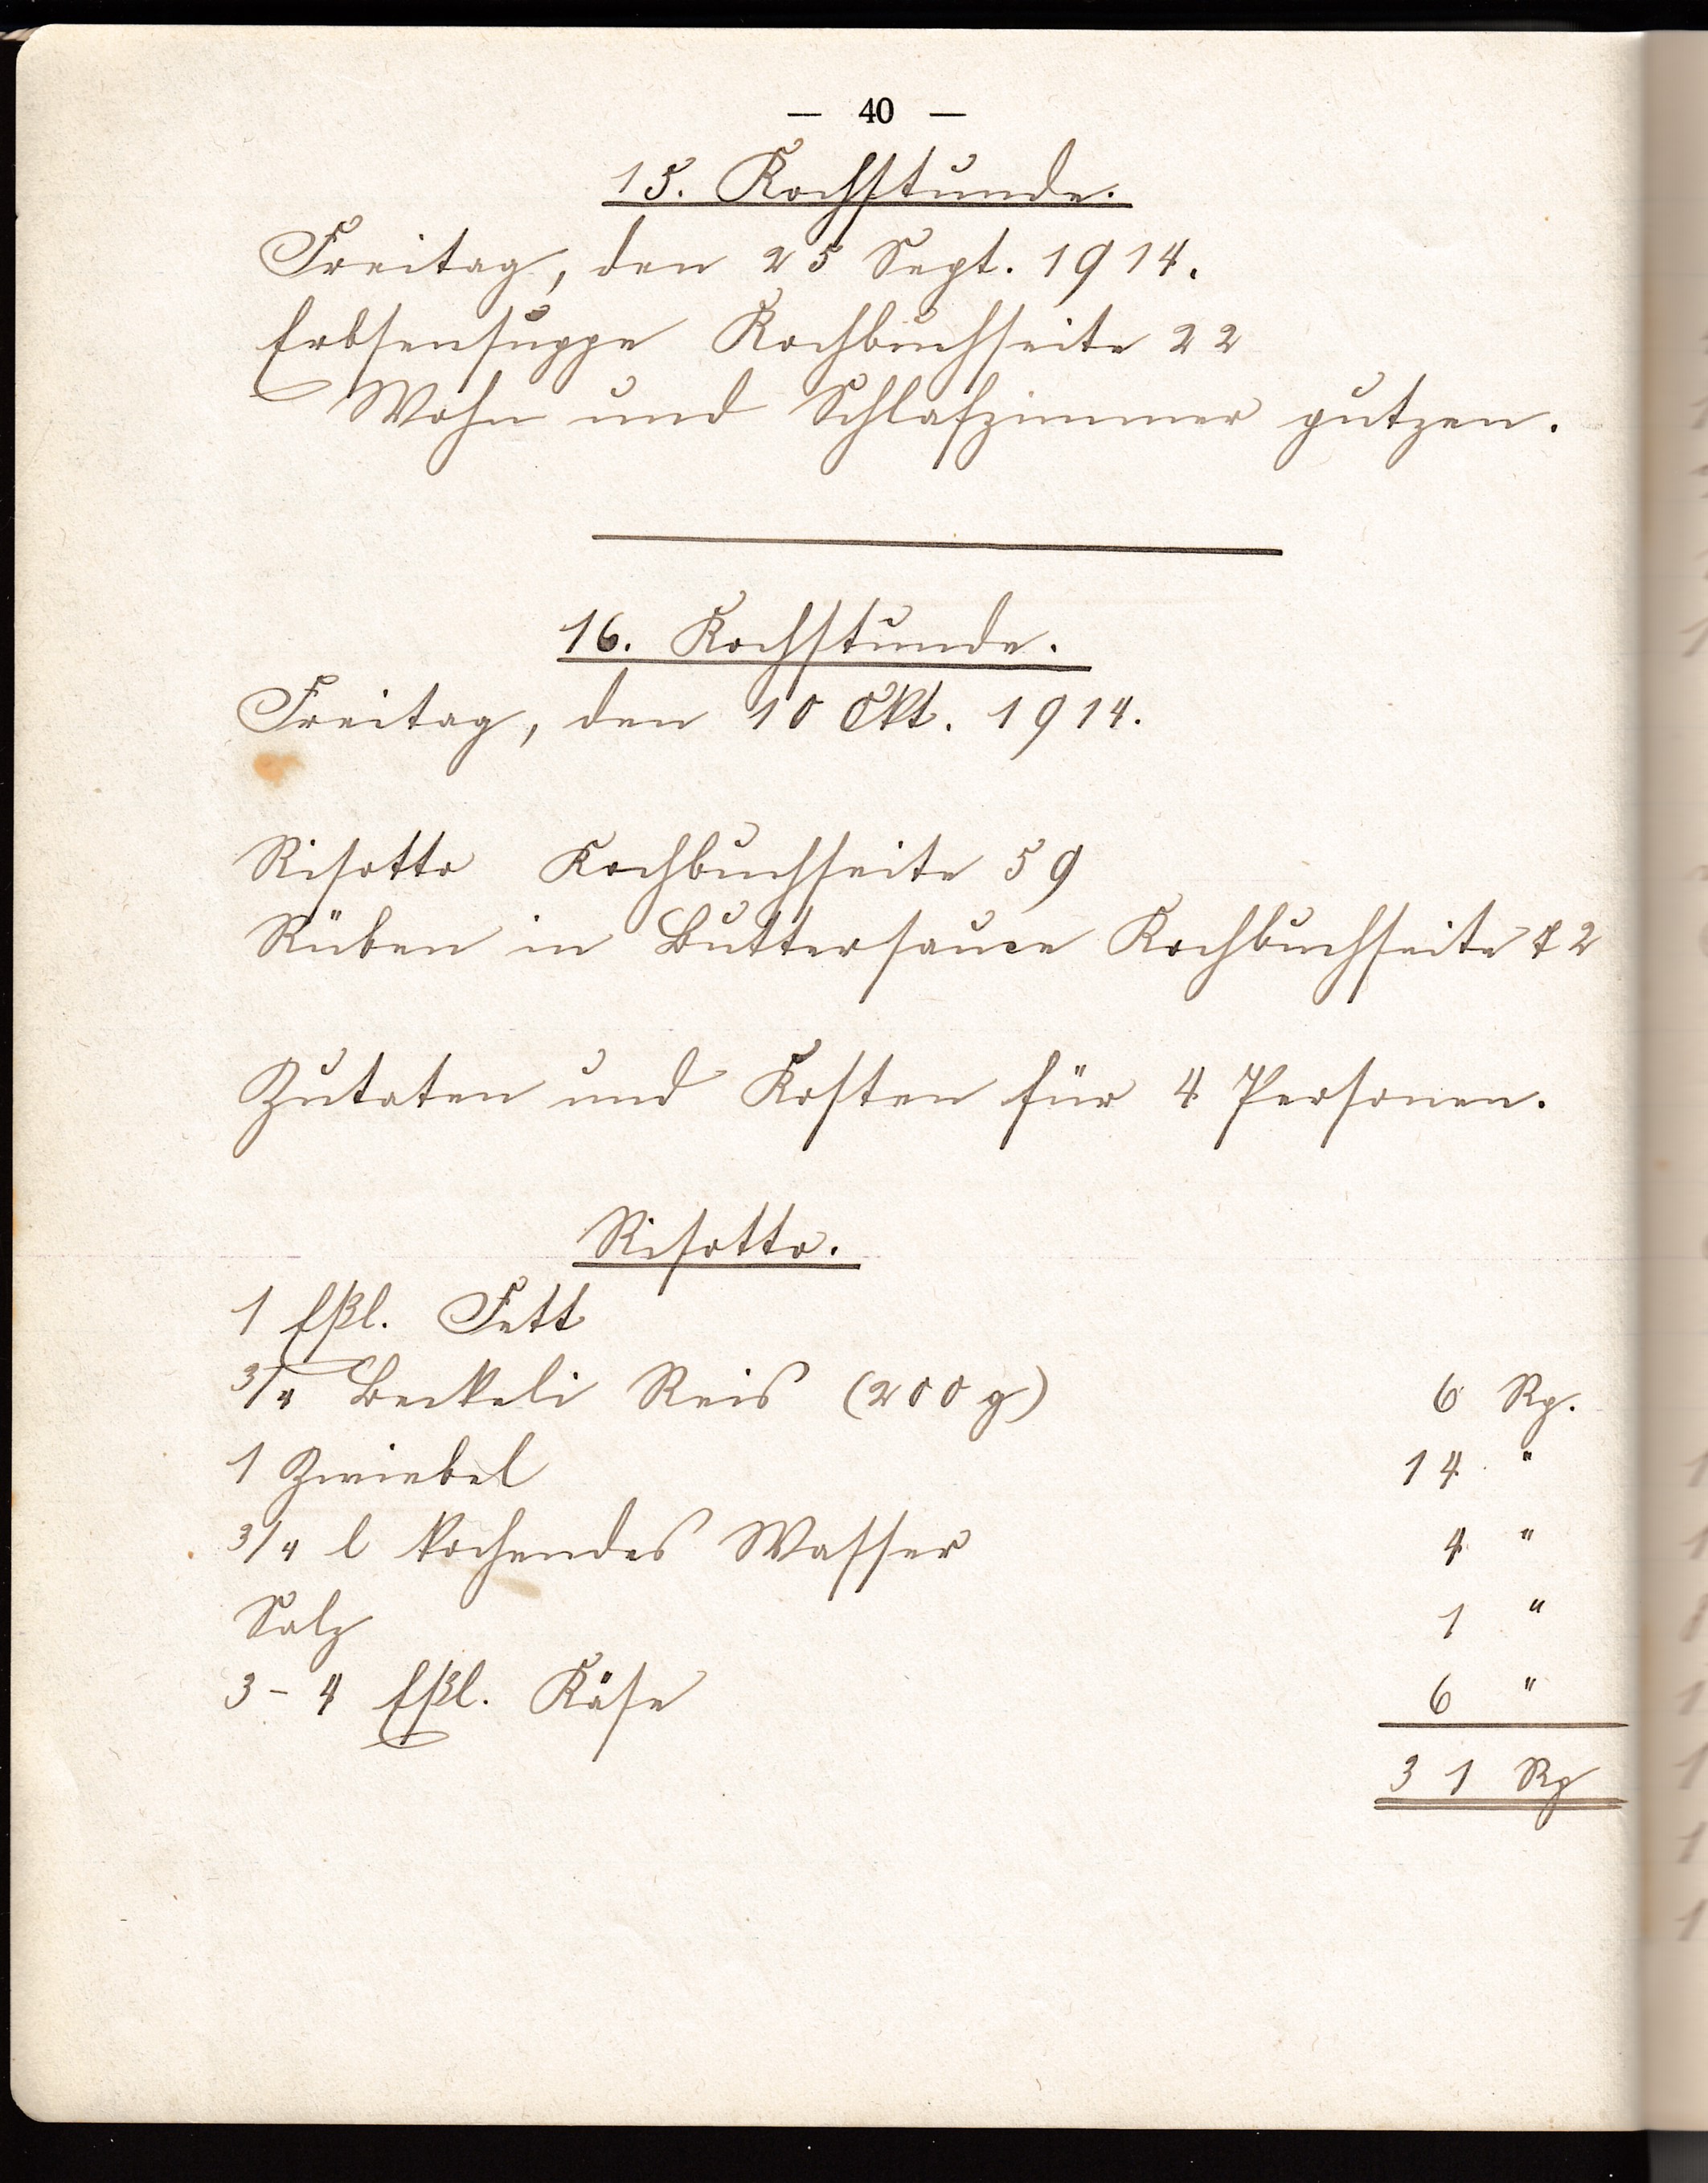 — 40 —
15. Kochstunde.
Freitag, den 25 Sept. 1914.
Erbsensuppe Kochbuchseite 22
Wohn und Schlafzimmer putzen.
16. Kochstunde.
Freitag, den 10 Okt. 1914.
Risotto Kochbuchseite 59
Rüben in Buttersauce Kochbuchseite 72
Zutaten und Kosten für 4 Personen.
Risotto.
1 Eßl. Fett
3/4 Beckeli Reis (200 g) 6 Rp.
1 Zwiebel 14 "
3/4 l kochendes Wasser 4 "
Salz 1 "
3-4 Eßl. Käse 6 "
31 Rp